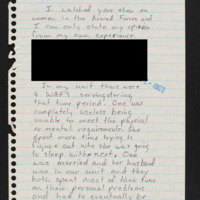 I watched your show on
women in the Armed Forces and
I can only state my opinion
from my own experience.
In my unit there were
4 WAF's serving during
that time period. One was
completely useless being
unable to meet the physical
or mental requirements. She
spent more time trying to
figure out who she was going
to sleep with next. One
was married and her husband
was in our unit and they
both spent most of their time
on their personal problems
and had to eventually be